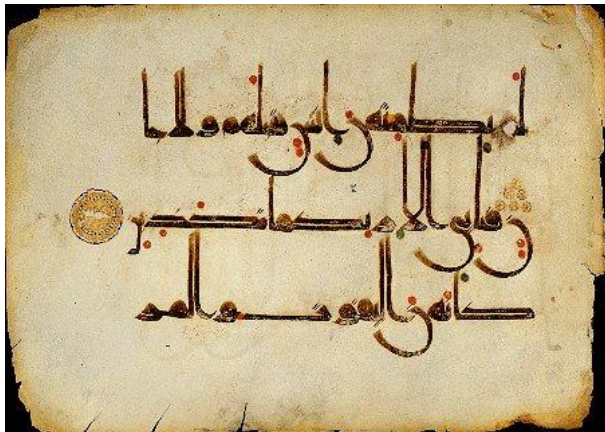 لم يطمثهن انس قبلهم ولا جا
ن فباي الا ربكما تكذبن
كانهن الياقوت والمر